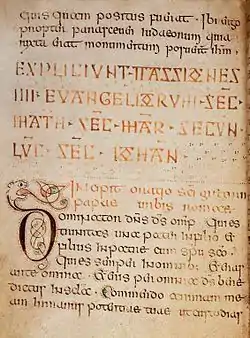 quisquam positus fuerat · Ibi ergo
propter parasceuen iudaeorum quia
iuxta erat monumentum posuerunt ihm ·
EXPLICIUNT · PASSIONES
IIII · EUANGELIORUM · SEC
MATH · SEC · MAR · SECUN
LUC · SEC · IOHAN ·
Incipit oratio sci
papae urbis romae
Dominator dns ds omp · qui es
trinitas una pater in filio et
filius in patre cum spu sco ·
Qui es semper in omnibus et eras
ante omnia · et eris per omnia ds bene
dictus in secla · Commendo animam me
am in manus potentiae tuae ut custodias